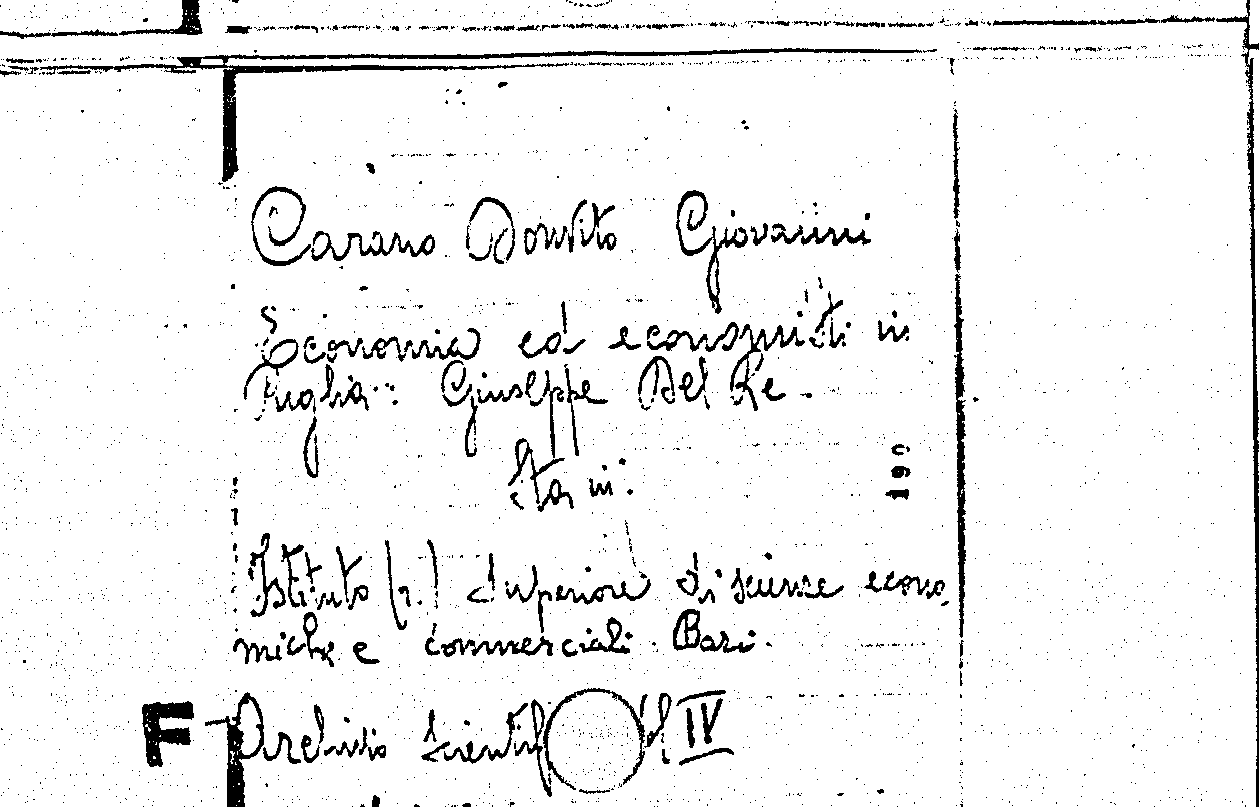 Carano Donvito Giovanni
Economia ed economisti in
Puglia: Giuseppe Del Re.
Sta in:
190
Istituto (r.) superiore di scienze econo
miche e commerciali. Bari.
F Archivio scientif IV